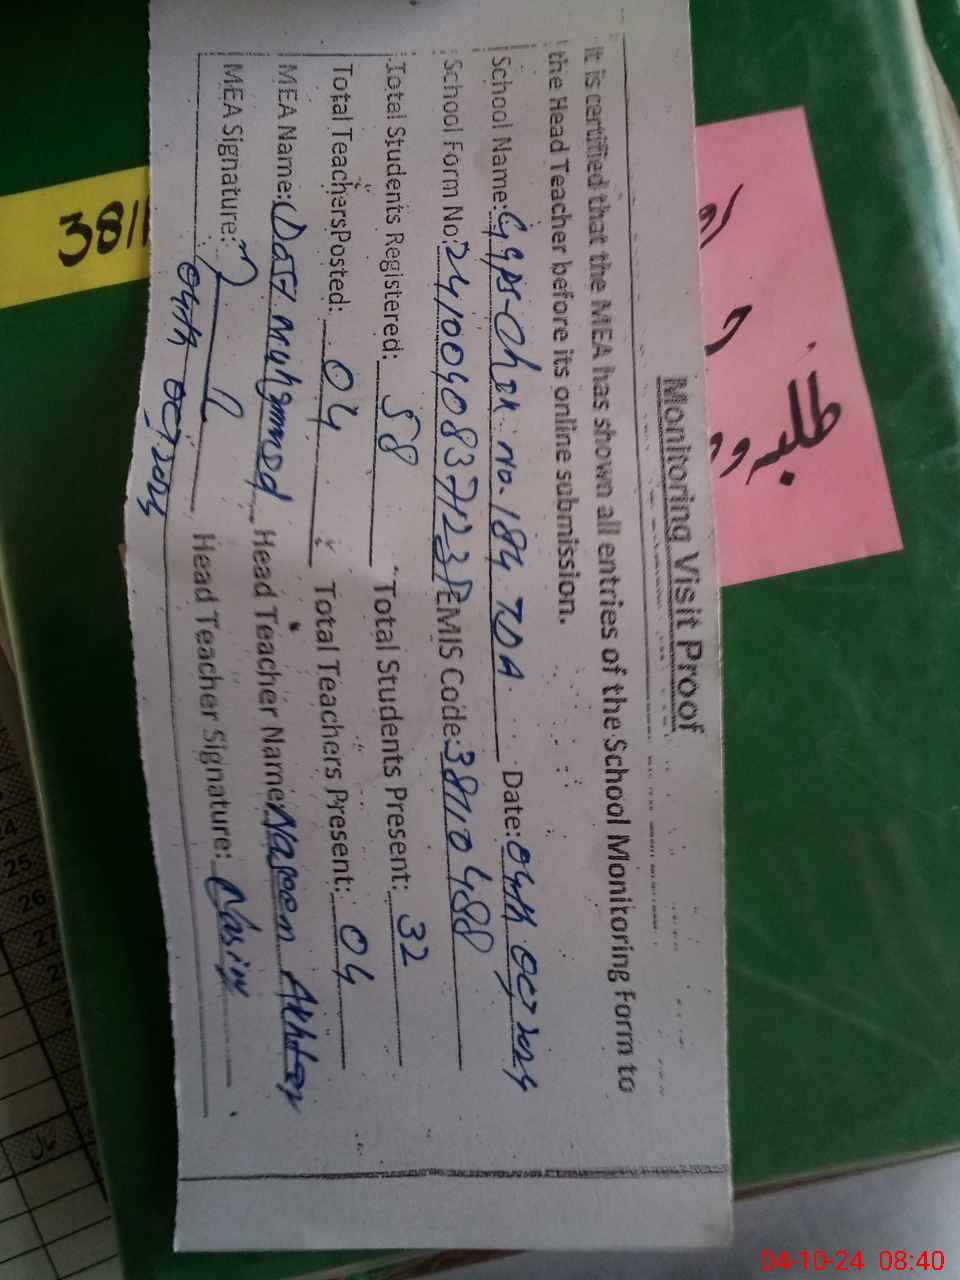 Monitoring Visit Proof
It is certified that the MEA has shown all entries of the School Monitoring Form to
the Head Teacher before its online submission.
School Name: GGPS-Chak no. 184 TDA. Date: 04th Oct 2024
School Form No: EMIS Code: 38110488
Total Students Registered: 58 Total Students Present: 32
Total Teachers Posted: 04 Total Teachers Present: 04
MEA Name: Head Teacher Name: Naseen Akhter
MEA Signature: Head Teacher Signature: Nasim
04th Oct 2024
381
طلبہ
25
26
27
04-10-24 08:40